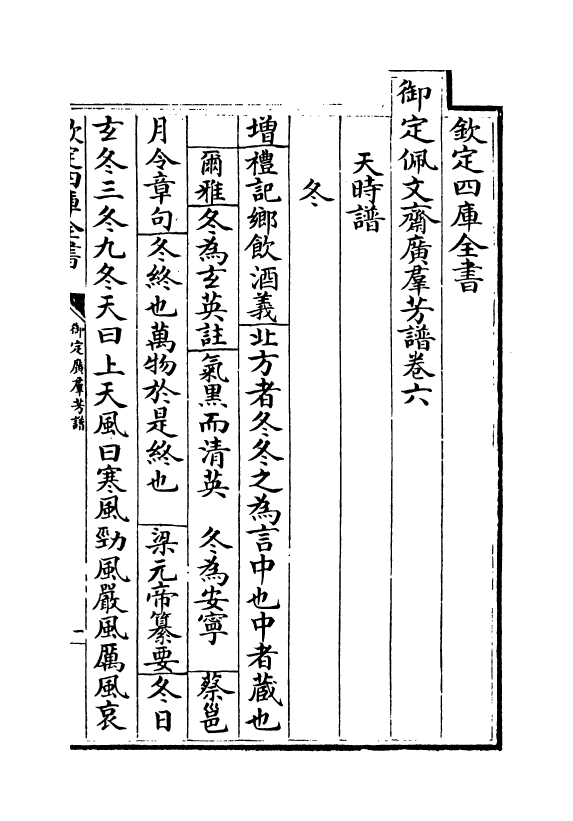 欽定四庫全書
御定佩文齋廣羣芳譜卷六
天時譜
冬
増禮記鄉飲酒義北方者冬冬之為言中也中者蔵也
爾雅冬為玄英註氣黒而清英 冬為安寧 蔡邕
月令章句冬終也萬物於是終也 梁元帝纂要冬日
玄冬三冬九冬天曰上天風曰寒風勁風嚴風厲風哀
欽定四庫全書
御定廣羣芳譜
一